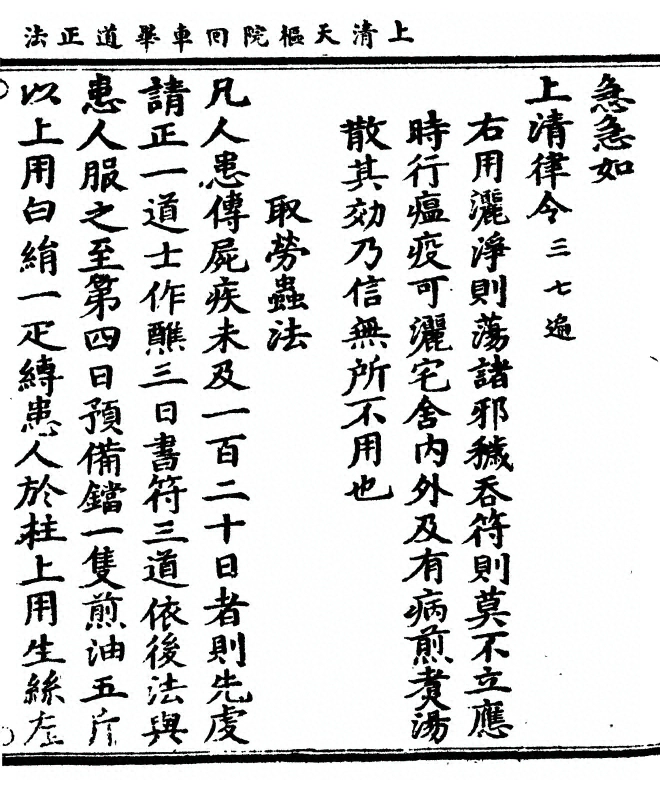 上清天樞院回車畢道正法
急急如
上清律令三七遍
右用灑淨則蕩諸邪穢吞符則莫不立應
時行瘟疫可灑宅舍內外及有病煎煑湯
散其効乃信無所不用也
取勞蟲法
凡人患傳屍疾未及一百二十日者則先虔
請正一道士作醮三日書符三道依後法與
患人服之至第四日預備鐺一隻煎油五斤
以上用白絹一疋縛患人於柱上用生絲左